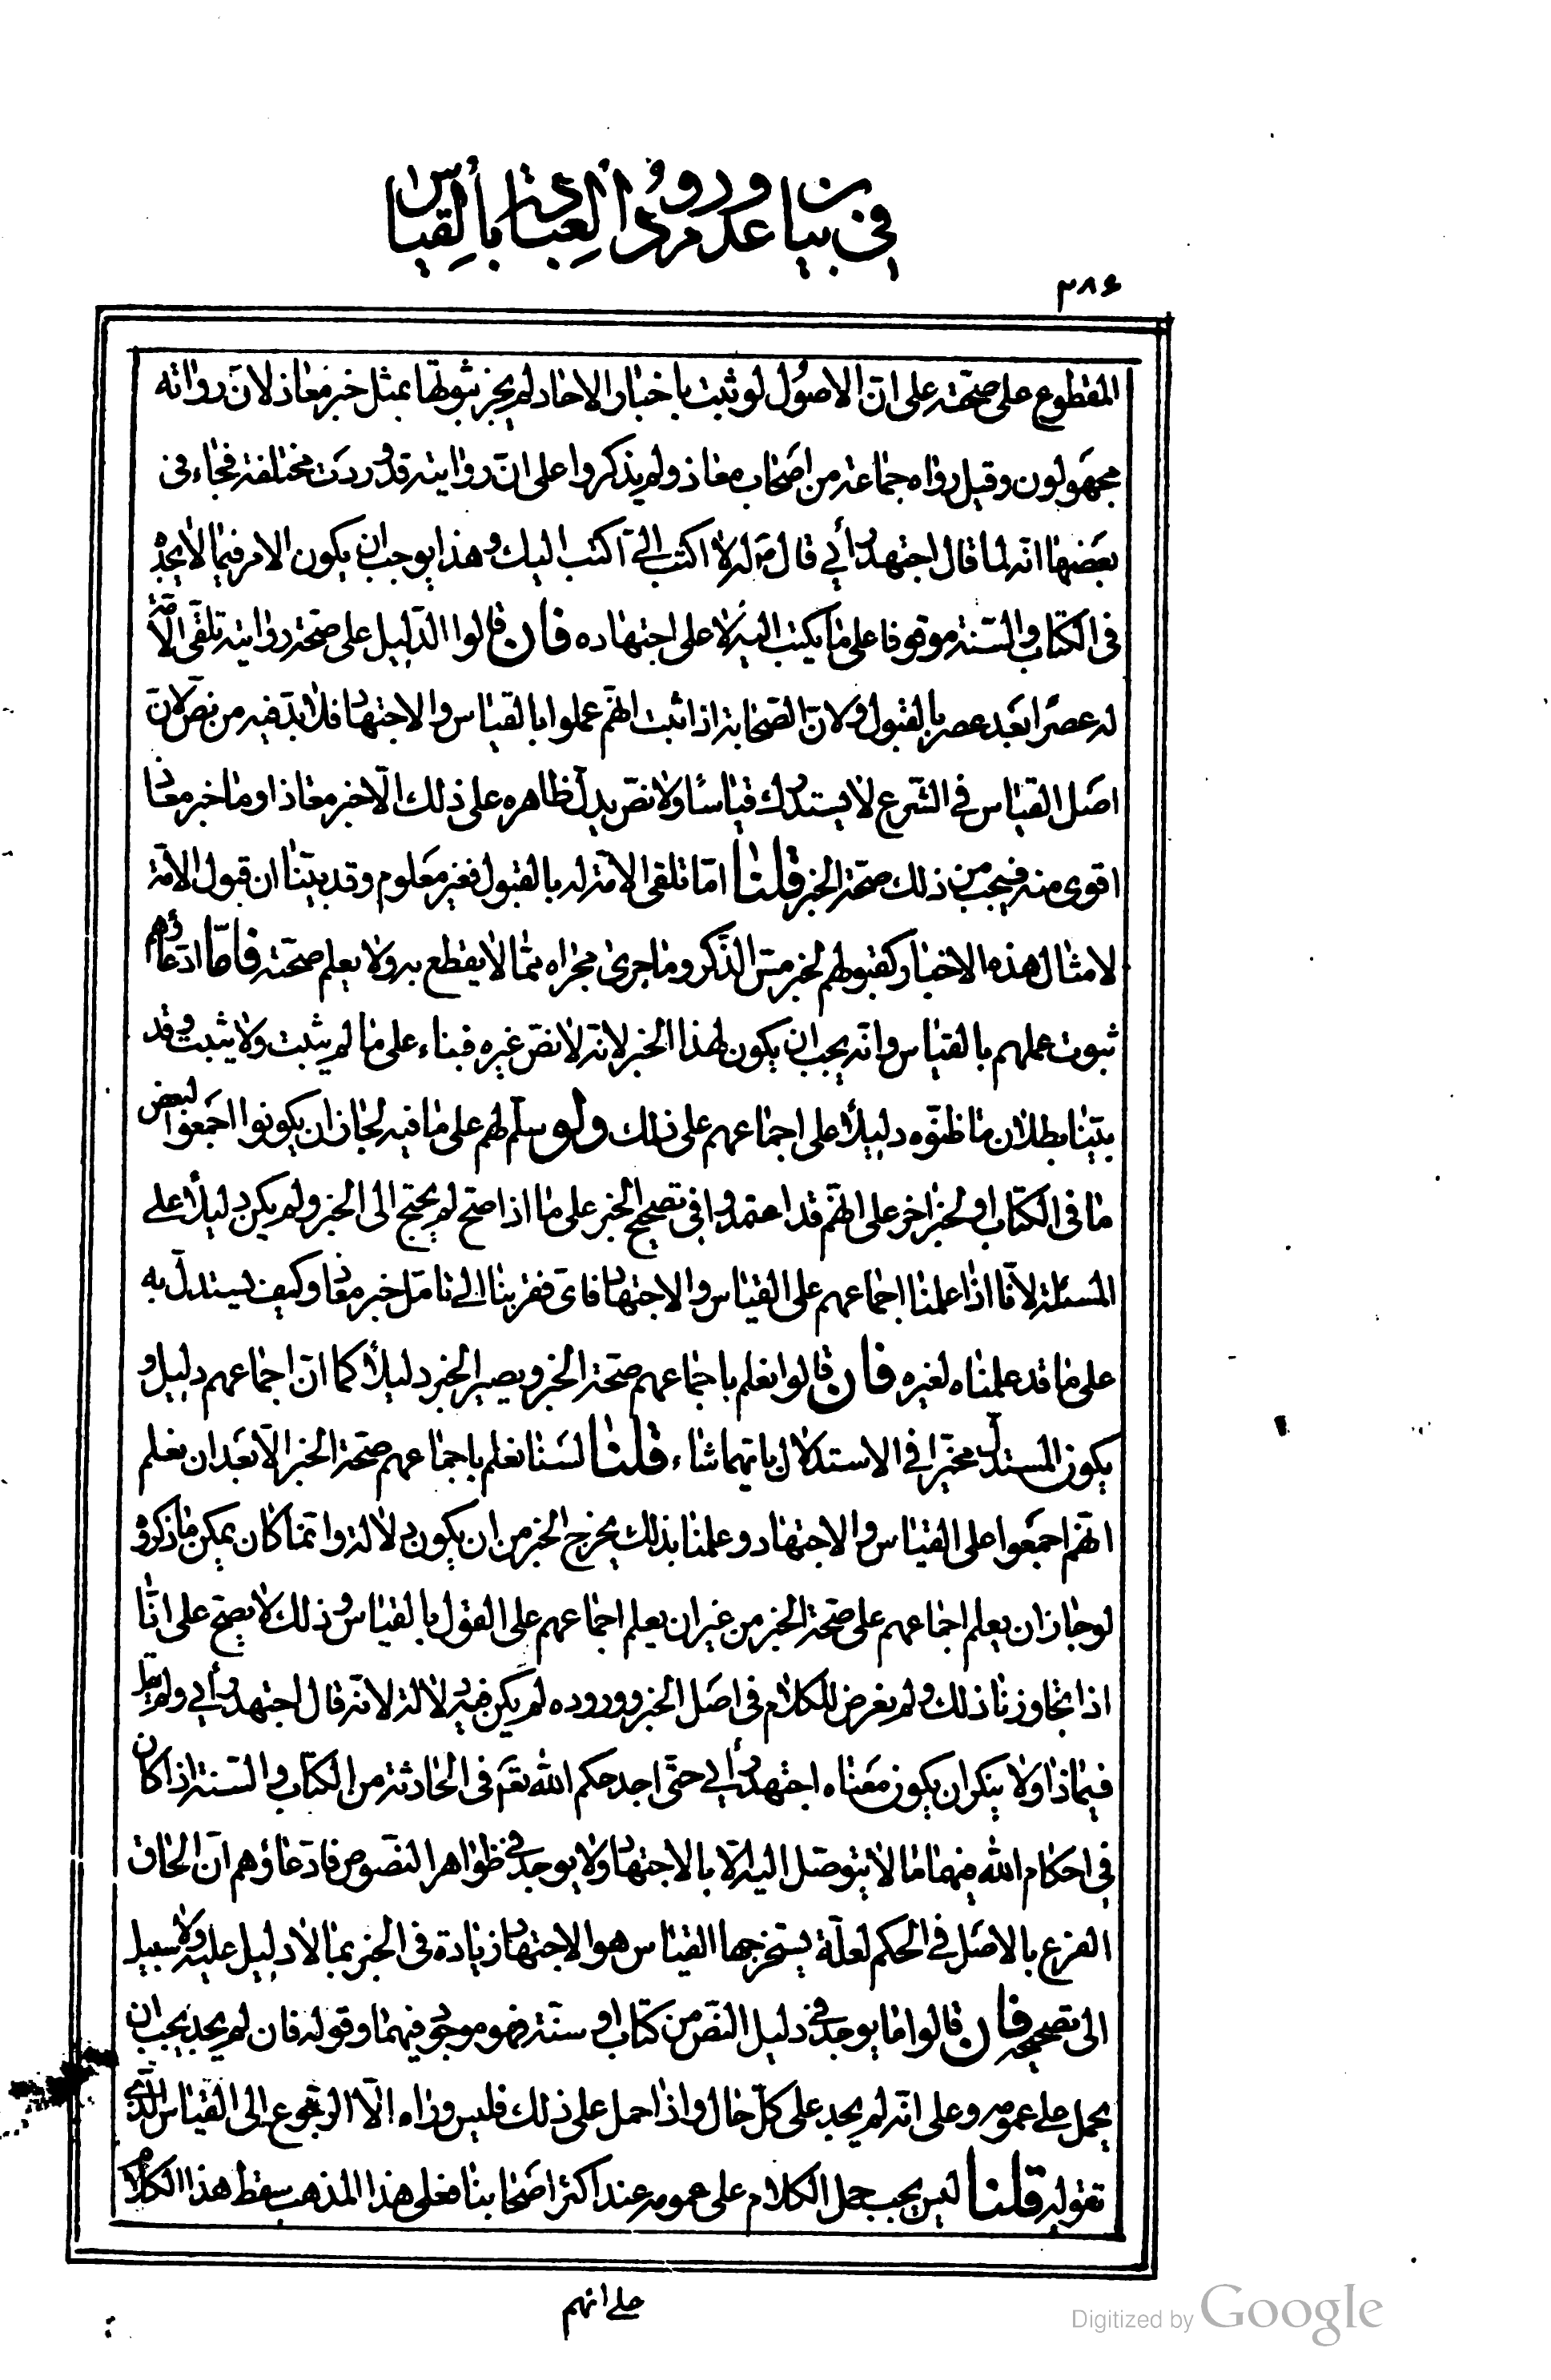 في بيان عدم ورود العبادة بالقياس
٣٨٤
المقطوع على صحّته على انّ الاصول لو ثبت باخبار الاحاد لم يجز ثبوتها بمثل خبر معاذ لانّ رواته
مجهولون وقيل رواه جماعة من اصحاب معاذ ولم يذكروا على انّ روايته قد وردت مختلفة فجاء في
بعضها انّه لما قال اجتهد رأيي قال ص له لا اكتب الىّ اكتب اليك وهذا يوجب ان يكون الامر فيما لا يجد
في الكتاب والسّنة موقوفا على ما يكتب اليه لا على اجتهاده فان قالوا الدّليل على صحّة روايته تلقّى الامّة
له عصرًا بعد عصر بالقبول ولانّ الصّحابة اذا ثبت انّهم عملوا بالقياس والاجتهاد فلا بدّ فيه من نصّ لانّ
اصل القياس في الشّرع لا يستدرك قياسًا ولا نصّ يدلّ ظاهره على ذلك الّا خبر معاذ او ما خبر معاذ
اقوى منه فيجب من ذلك صحّة الخبر قلنا امّا تلقى الامّة له بالقبول فغير معلوم وقد بيّنا ان قبول الامّة
لامثال هذه الاخبار كقبولهم لخبر مسّ الذّكر وما جرى مجراه ممّا لا يقطع به ولا يعلم صحّته فامّا ادّعاؤهم
ثبوت عملهم بالقياس وانّه يجب ان يكون لهذا الخبر لانّه لا نصّ غيره فبناء على ما لم يثبت ولا يثبت وقد
بيّنا بطلان ما ظنّوه دليلًا على اجماعهم على ذلك ولو سلّم لهم على ما فيه لجاز ان يكونوا اجمعوا لبعض
ما في الكتاب او لخبر اخر على انّهم قد اعتمدوا في تصحيح الخبر على ما اذا صحّ لم يحتج الى الخبر ولم يكن دليلًا على
المسئلة لانّا اذا علمنا اجماعهم على القياس والاجتهاد فاىّ فقر بنا الى تامّل خبر معاذ وكيف يستدلّ به
على ما قد علمناه لغيره فان قالوا نعلم باجماعهم صحّة الخبر ويصير الخبر دليلًا كما انّ اجماعهم دليل و
يكون المستدلّ مخيّرا في الاستدلال بايّهما شاء قلنا لسنا نعلم باجماعهم صحّة الخبر الّا بعد ان نعلم
انّهم اجمعوا على القياس والاجتهاد وعلمنا بذلك يخرج الخبر من ان يكون دلالة وانّما كان يمكن ما ذكروه
لو جاز ان يعلم اجماعهم على صحّة الخبر من غير ان يعلم اجماعهم على القول بالقياس وذلك لا يصحّ على انّا
اذا تجاوزنا ذلك ولم نعرض للكلام في اصل الخبر ووروده لم يكن فيه دلالة لانّه قال اجتهد رأيي ولم يقل
فيماذا ولا ينكر ان يكون معناه اجتهد رأيي حتّى اجد حكم الله تع في الحادثة من الكتاب والسّنة اذا كان
في احكام الله فيهما ما لا يتوصّل اليه الّا بالاجتهاد ولا يوجد في ظواهر النّصوص فادّعاؤهم انّ الحاق
الفرع بالاصل في الحكم لعلّة يستخرجها القياس هو الاجتهاد زيادة في الخبر بما لا دليل عليه ولا سبيل
الى تصحيحه فان قالوا ما يوجد في دليل النّص من كتاب او سنّة فهو موجود فيهما وقوله فان لم يجد يجب ان
يحمل على عمومه وعلى انّه لم يجد على كلّ حال واذا حمل على ذلك فليس وراءه الّا الرجوع الى القياس الّذى
نقوله قلنا ليس يجب حمل الكلام على عمومه عند اكثر اصحابنا فعلى هذا المذهب سقط هذا الكلام
على انهم
Digitized by Google